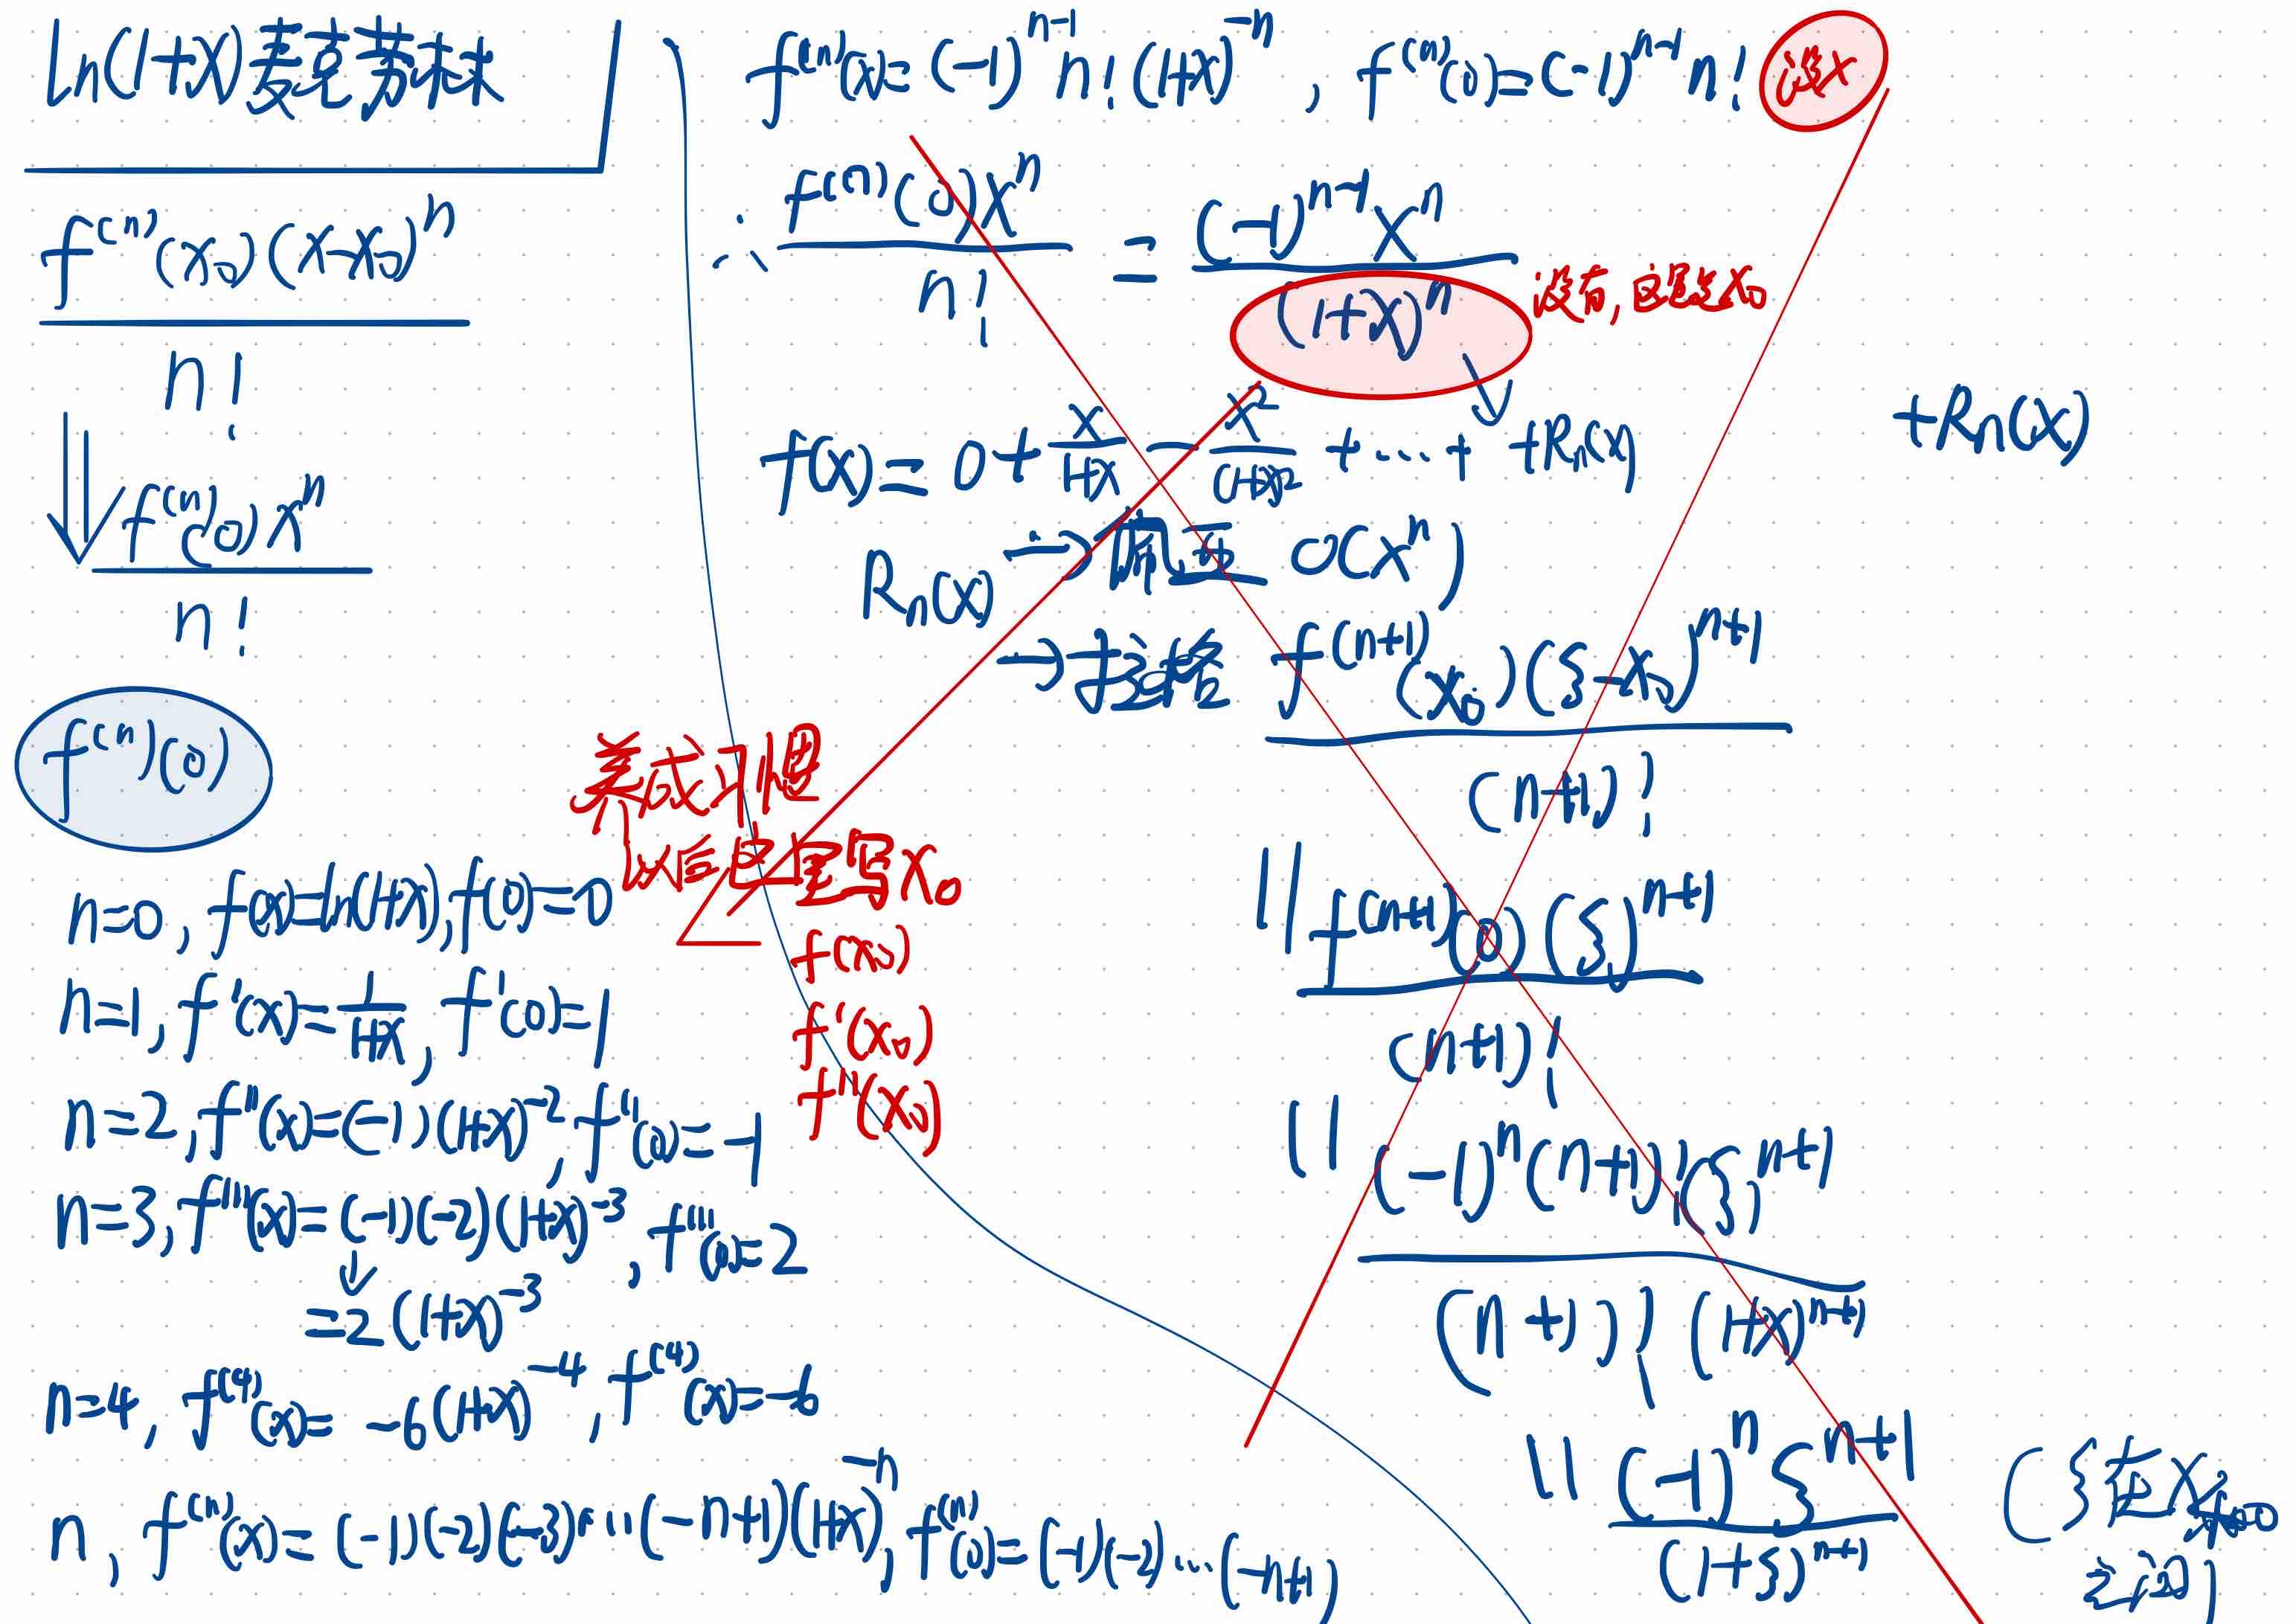 ln(1+x)麦克劳林
f⁽ⁿ⁾(x₀)(x-x₀)ⁿ
n!
f⁽ⁿ⁾(0)xⁿ
n!
f⁽ⁿ⁾(0)
n=0, f(x)=ln(1+x), f(0)=0
n=1, f'(x)=1/(1+x), f'(0)=1
n=2, f''(x)=(-1)(1+x)⁻², f''(0)=-1
n=3, f'''(x)=(-1)(-2)(1+x)⁻³, f'''(0)=2
=2(1+x)⁻³
n=4, f⁽⁴⁾(x)=-6(1+x)⁻⁴, f⁽⁴⁾(x)=-6
n, f⁽ⁿ⁾(x)=(-1)(-2)(-3)...(-n+1)(1+x)⁻ⁿ, f⁽ⁿ⁾(0)=(-1)(-2)...(-n+1)
f⁽ⁿ⁾(x)=(-1)ⁿ⁻¹n!(1+x)⁻ⁿ, f⁽ⁿ⁾(0)=(-1)ⁿ⁻¹n! 没x
∴ f⁽ⁿ⁾(0)xⁿ/n! = (-1)ⁿ⁻¹xⁿ/(1+x)ⁿ
没有,这里是x₀
f(x)=0+x/(1+x)-x²/(1+x)²+...+ +Rn(x)
+Rn(x)
Rn(x)→佩亚 o(xⁿ)
→拉格 f⁽ⁿ⁺¹⁾(x₀)(ξ-x₀)ⁿ⁺¹
(n+1)!
养成习惯
以后这里写x₀
f(x₀)
f'(x₀)
f''(x₀)
|| f⁽ⁿ⁺¹⁾(0)(ξ)ⁿ⁺¹
(n+1)!
|| (-1)ⁿ(n+1)!(ξ)ⁿ⁺¹
(n+1)!(1+x)ⁿ⁺¹
|| (-1)ⁿξⁿ⁺¹
(1+ξ)ⁿ⁺¹
(ξ在x
之间)